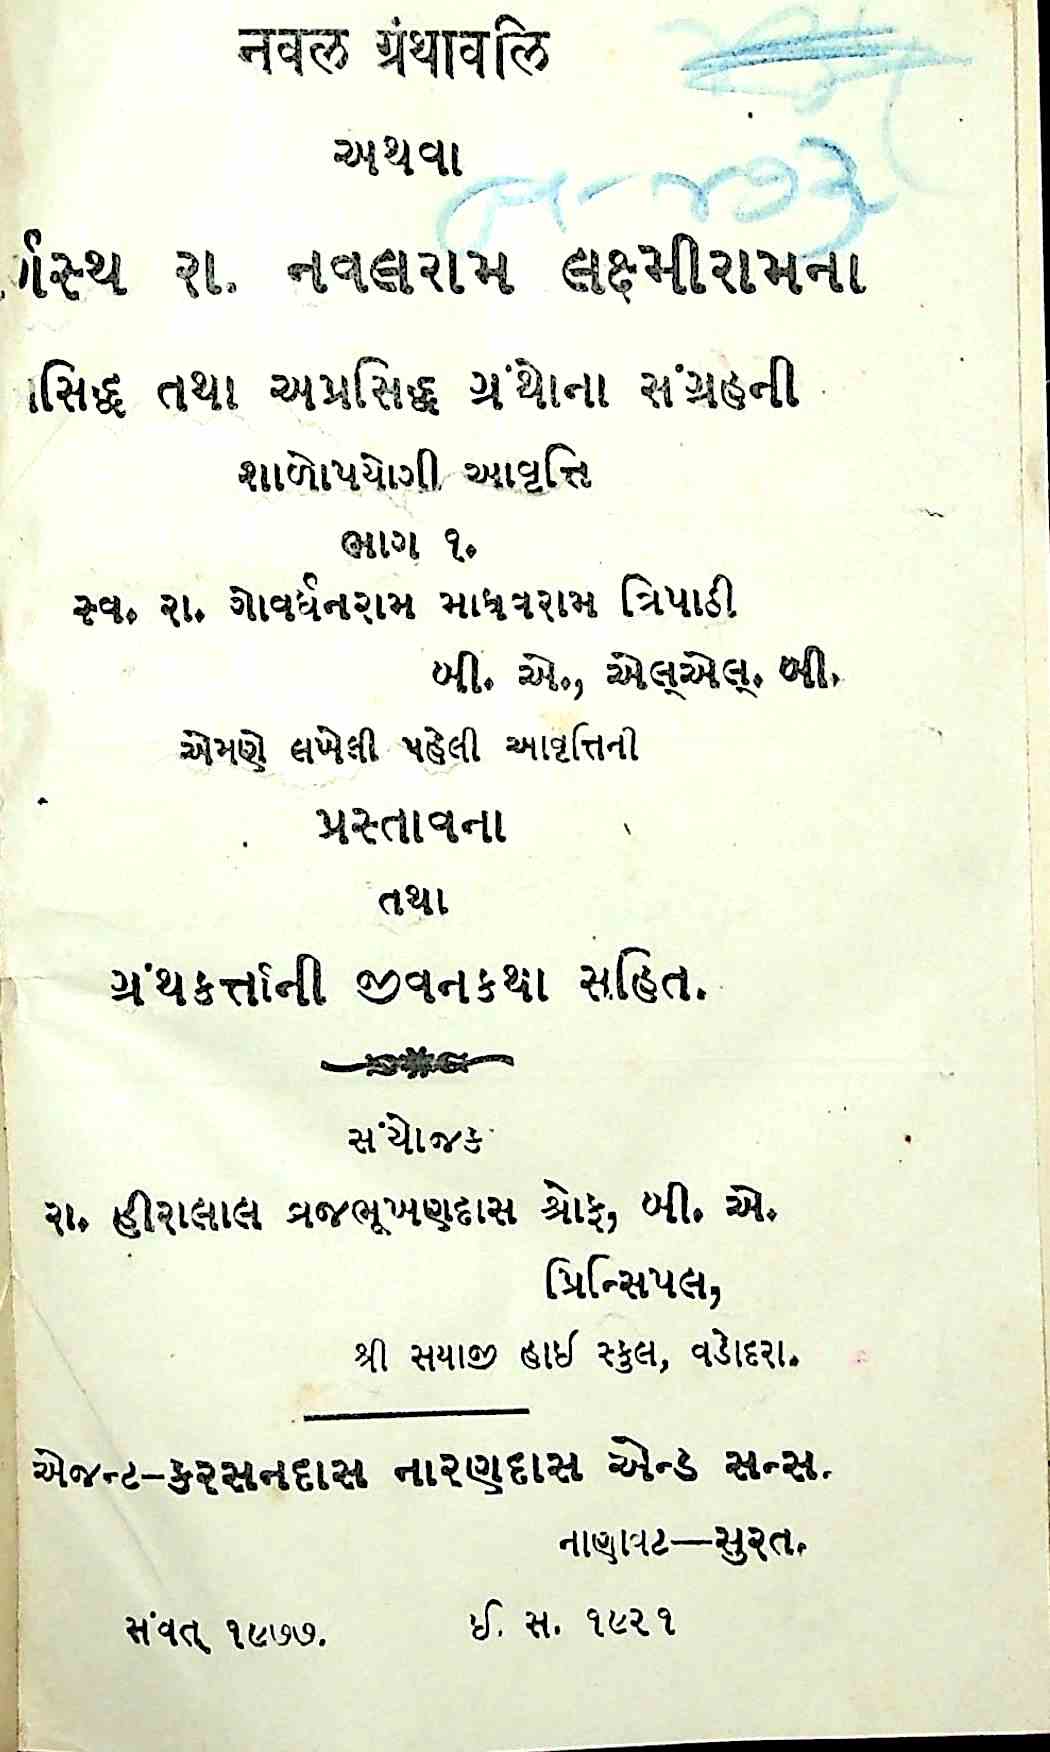 નવલ ગ્રંથાવલિ
અથવા
ર્ગસ્થ રા. નવલરામ લક્ષ્મીરામના
સિદ્ધ તથા અપ્રસિદ્ધ ગ્રંથોના સંગ્રહની
શાળોપયોગી આવૃત્તિ
ભાગ ૧.
સ્વ. રા. ગોવર્ધનરામ માધવરામ ત્રિપાઠી
બી. એ., એલ્એલ્. બી.
એમણે લખેલી પહેલી આવૃત્તિની
પ્રસ્તાવના
તથા
ગ્રંથકર્ત્તાની જીવનકથા સહિત.
સંયોજક
રા. હીરાલાલ વ્રજભૂખણદાસ શ્રોફ, બી. એ.
પ્રિન્સિપલ,
શ્રી સયાજી હાઈ સ્કુલ, વડોદરા.
એજન્ટ–કરસનદાસ નારણદાસ એન્ડ સન્સ.
નાણાવટ—સુરત.
સંવત્ ૧૯૭૭. ઈ. સ. ૧૯૨૧